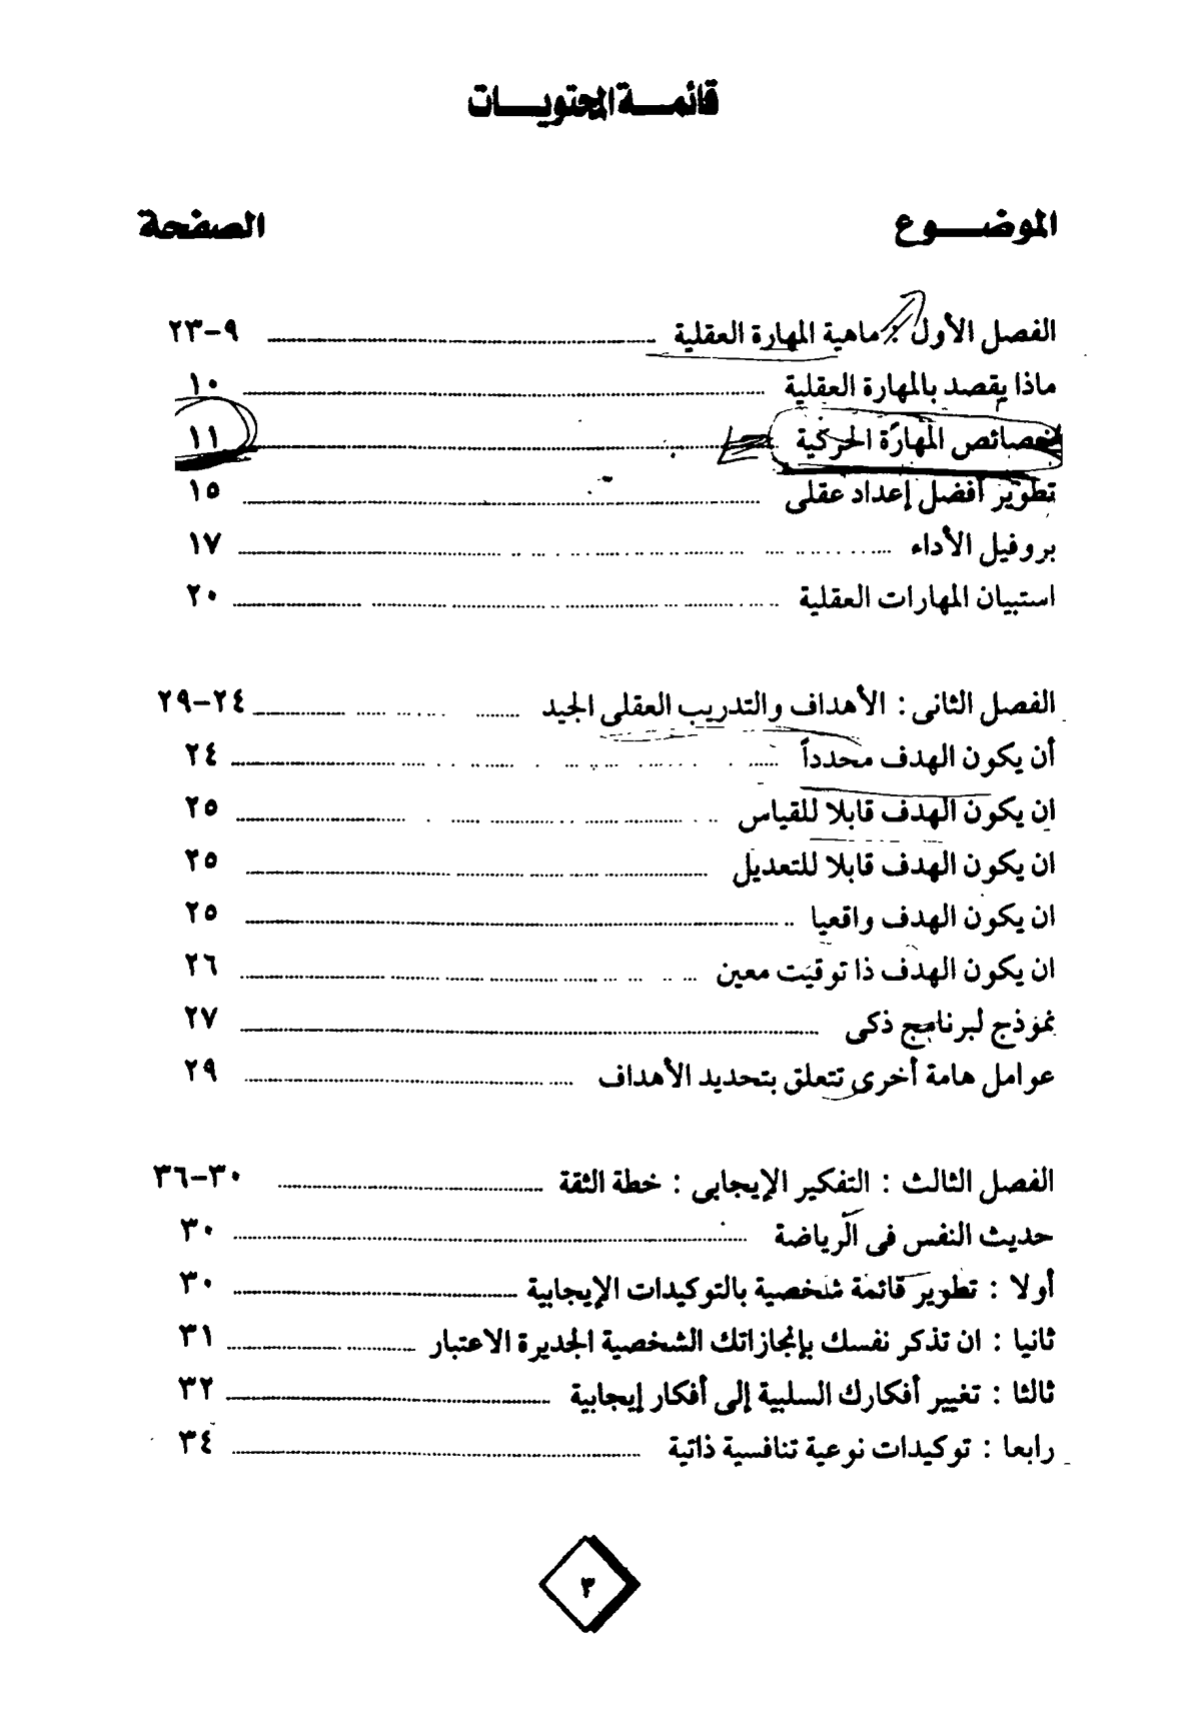 قائمة المحتويات
الموضوع الصفحة
الفصل الأول : ماهية المهارة العقلية ٩-٢٣
ماذا يقصد بالمهارة العقلية ١٠
خصائص المهارة الحركية ١١
تطوير أفضل إعداد عقلى ١٥
بروفيل الأداء ١٧
استبيان المهارات العقلية ٢٠
الفصل الثانى : الأهداف والتدريب العقلى الجيد ٢٤-٢٩
أن يكون الهدف محدداً ٢٤
ان يكون الهدف قابلا للقياس ٢٥
ان يكون الهدف قابلا للتعديل ٢٥
ان يكون الهدف واقعيا ٢٥
ان يكون الهدف ذا توقيت معين ٢٦
نموذج لبرنامج ذكى ٢٧
عوامل هامة أخرى تتعلق بتحديد الأهداف ٢٩
الفصل الثالث : التفكير الإيجابى : خطة الثقة ٣٠-٣٦
حديث النفس فى الرياضة ٣٠
أولا : تطوير قائمة شخصية بالتوكيدات الإيجابية ٣٠
ثانيا : ان تذكر نفسك بإنجازاتك الشخصية الجديرة الاعتبار ٣١
ثالثا : تغيير أفكارك السلبية إلى أفكار إيجابية ٣٢
رابعا : توكيدات نوعية تنافسية ذاتية ٣٤
٣